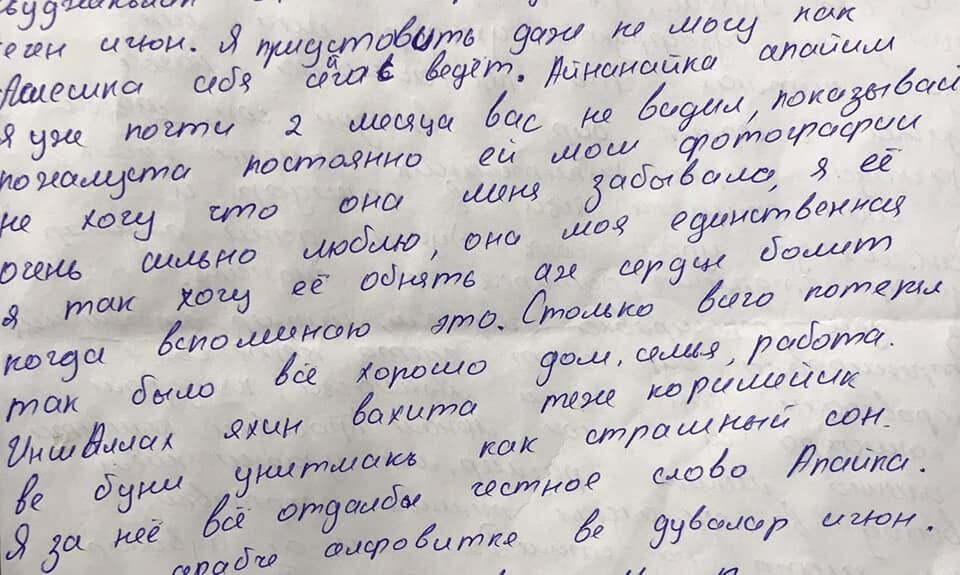 еген игюн. Я придстовить даже не могу как
Алешка себя сейчас ведёт. Айнанайка апайим
я уже почти 2 месяца вас не видил, показывай
пожалуста постоянно ей мои фотографии
не хочу что она меня забывало, я её
очень сильно люблю, она моя единственная
я так хочу её обнять аж сердце болит
когда вспоминаю это. Столько всего потерял
так было всё хорошо дом, семья, работа.
ИншАллах яхин вахита теже коримейик
ве буни унитмакь как страшный сон.
Я за неё всё отдалбы честное слово Апайка.
арабче алфовитке ве дувалар игюн.